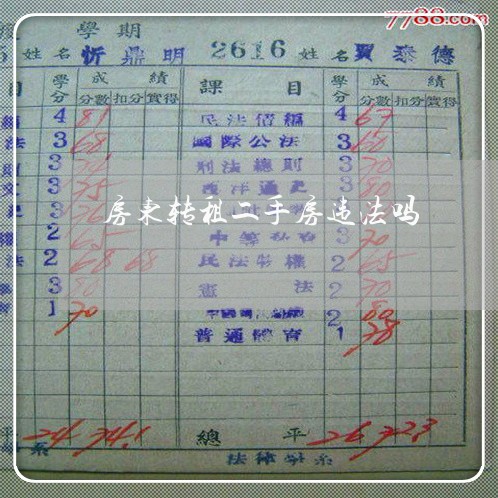 7788.com
學期
姓名 忻鼎明 2616 姓名 賈泰德
目 學分 成績 課目 學分 成績
分數 扣分 實得 分數 扣分 實得
4 81 民法債編 4 67
法 3 68 國際公法 3 60
3 刑法總則 3 70
3 75 西洋通史 3 80
3
房东转租二手房违法吗
2 65 3 70
法 2 68 68 民法物權 2 65
3 80 憲法 2 70
1 70 2 80
普通體育 1 78
平 24 74.1 總平 26 72.3
系 法律學系